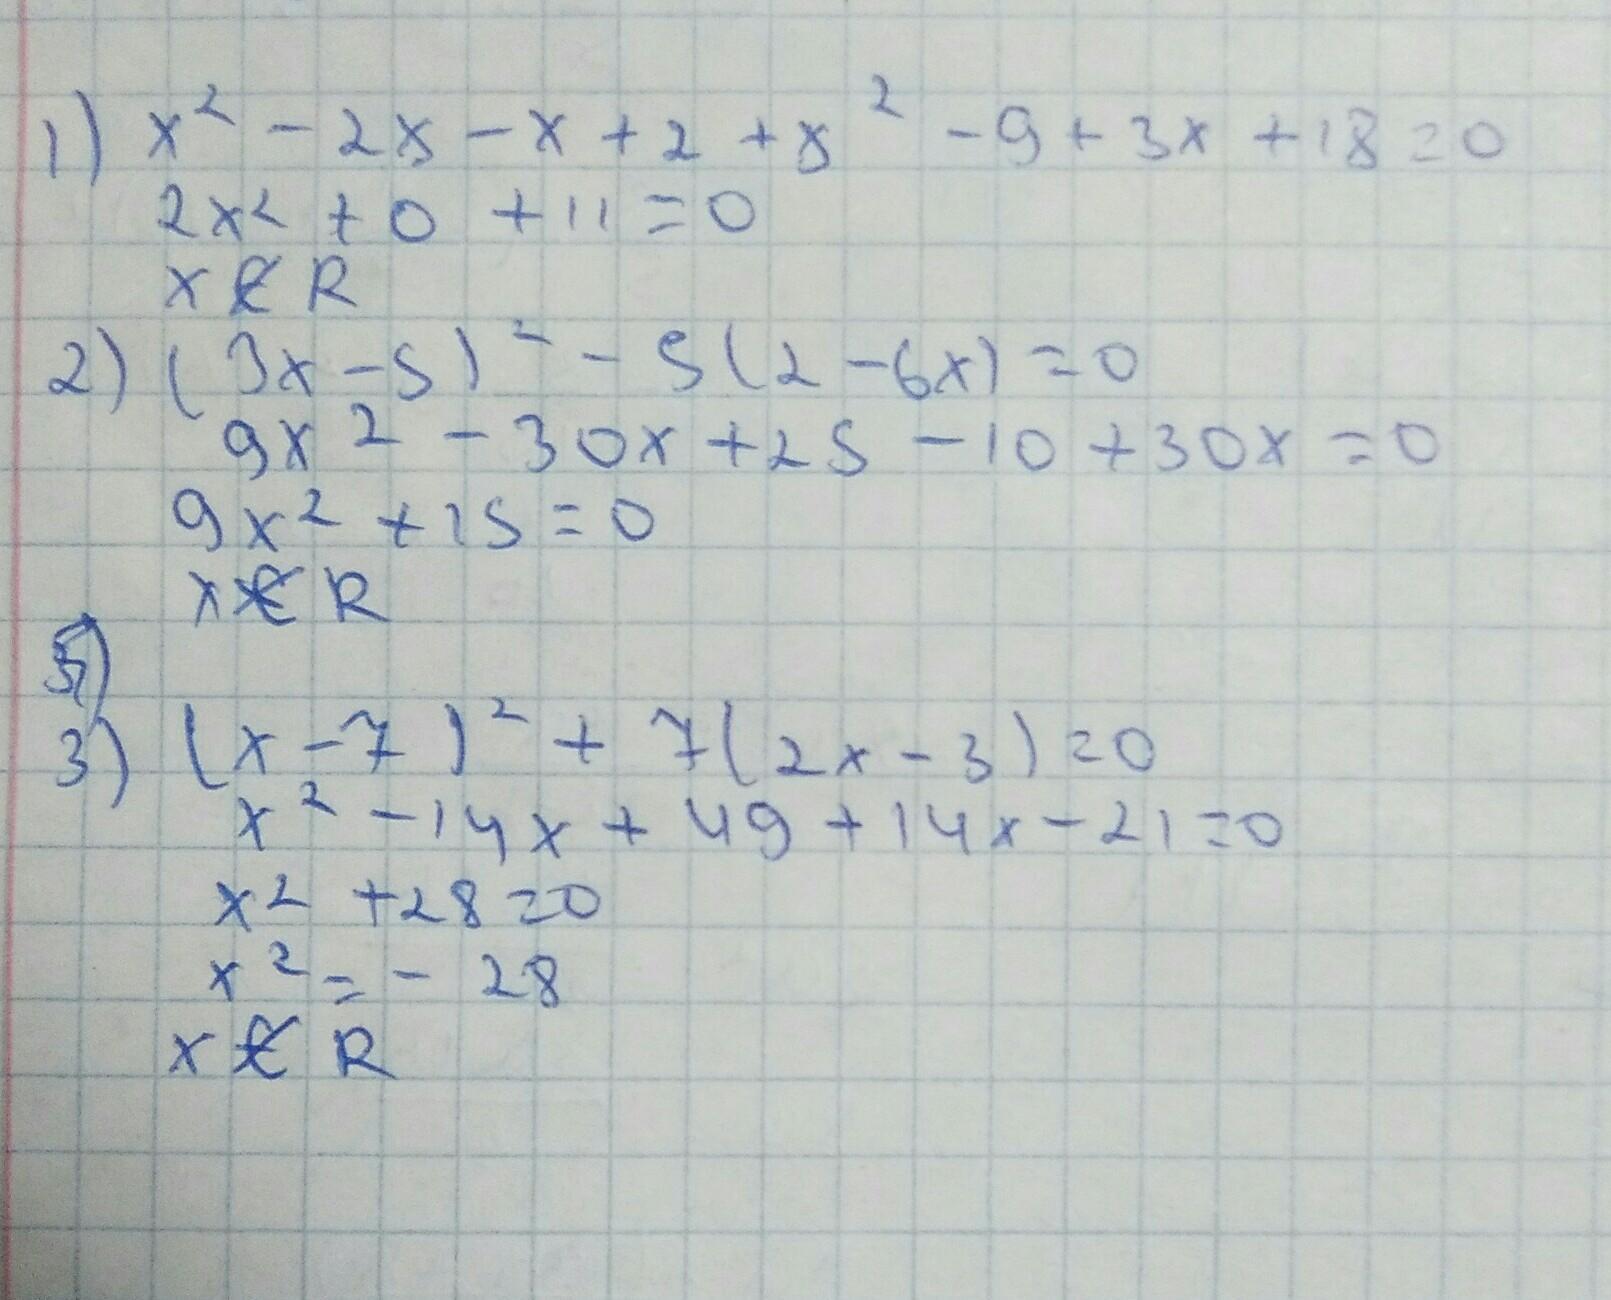 1) x² - 2x - x + 2 + x² - 9 + 3x + 18 = 0
2x² + 0 + 11 = 0
x ∉ R
2) (3x - 5)² - 5(2 - 6x) = 0
9x² - 30x + 25 - 10 + 30x = 0
9x² + 15 = 0
x ∉ R
5)
3) (x - 7)² + 7(2x - 3) = 0
x² - 14x + 49 + 14x - 21 = 0
x² + 28 = 0
x² = - 28
x ∉ R